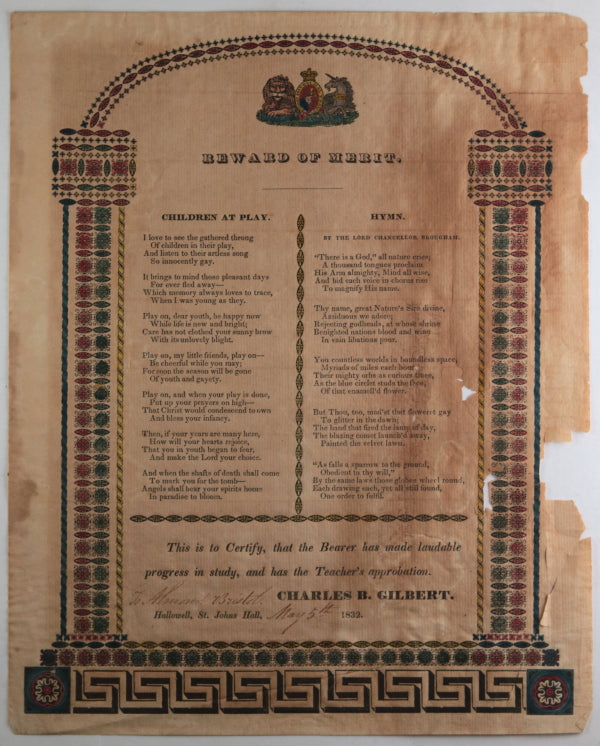 REWARD OF MERIT.
CHILDREN AT PLAY.
I love to see the gathered throng
Of children in their play,
And listen to their artless song
So innocently gay.
It brings to mind those pleasant days
For ever fled away—
Which memory always loves to trace,
When I was young as they.
Play on, dear youth, be happy now
While life is new and bright;
Care has not clothed your sunny brow
With its unlovely blight.
Play on, my little friends, play on—
Be cheerful while you may;
For soon the season will be gone
Of youth and gayety.
Play on, and when your play is done,
Put up your prayers on high—
That Christ would condescend to own
And bless your infancy.
Then, if your years are many here,
How will your hearts rejoice,
That you in youth began to fear,
And make the Lord your choice.
And when the shafts of death shall come
To mark you for the tomb—
Angels shall bear your spirits home
In paradise to bloom.
HYMN.
BY THE LORD CHANCELLOR BROUGHAM.
“There is a God,” all nature cries;
A thousand tongues proclaim
His Arm almighty, Mind all wise,
And bid each voice in chorus rise
To magnify His name.
Thy name, great Nature's Sire divine,
Assiduous we adore;
Rejecting godheads, at whose shrine
Benighted nations blood and wine
In vain libations pour.
Yon countless worlds in boundless space,
Myriads of miles each hour
Their mighty orbs as curious trace,
As the blue circlet studs the face,
Of that enamell'd flower.
But Thou, too, mad'st that floweret gay
To glitter in the dawn;
The hand that fired the lamp of day,
The blazing comet launch'd away,
Painted the velvet lawn.
“As falls a sparrow to the ground,
Obedient to thy will,”
By the same laws those globes wheel round,
Each drawing each, yet all still found,
One order to fulfil.
This is to Certify, that the Bearer has made laudable
progress in study, and has the Teacher's approbation.
To Bristol. CHARLES B. GILBERT.
Hallowell, St. Johns Hall, May 5th 1832.